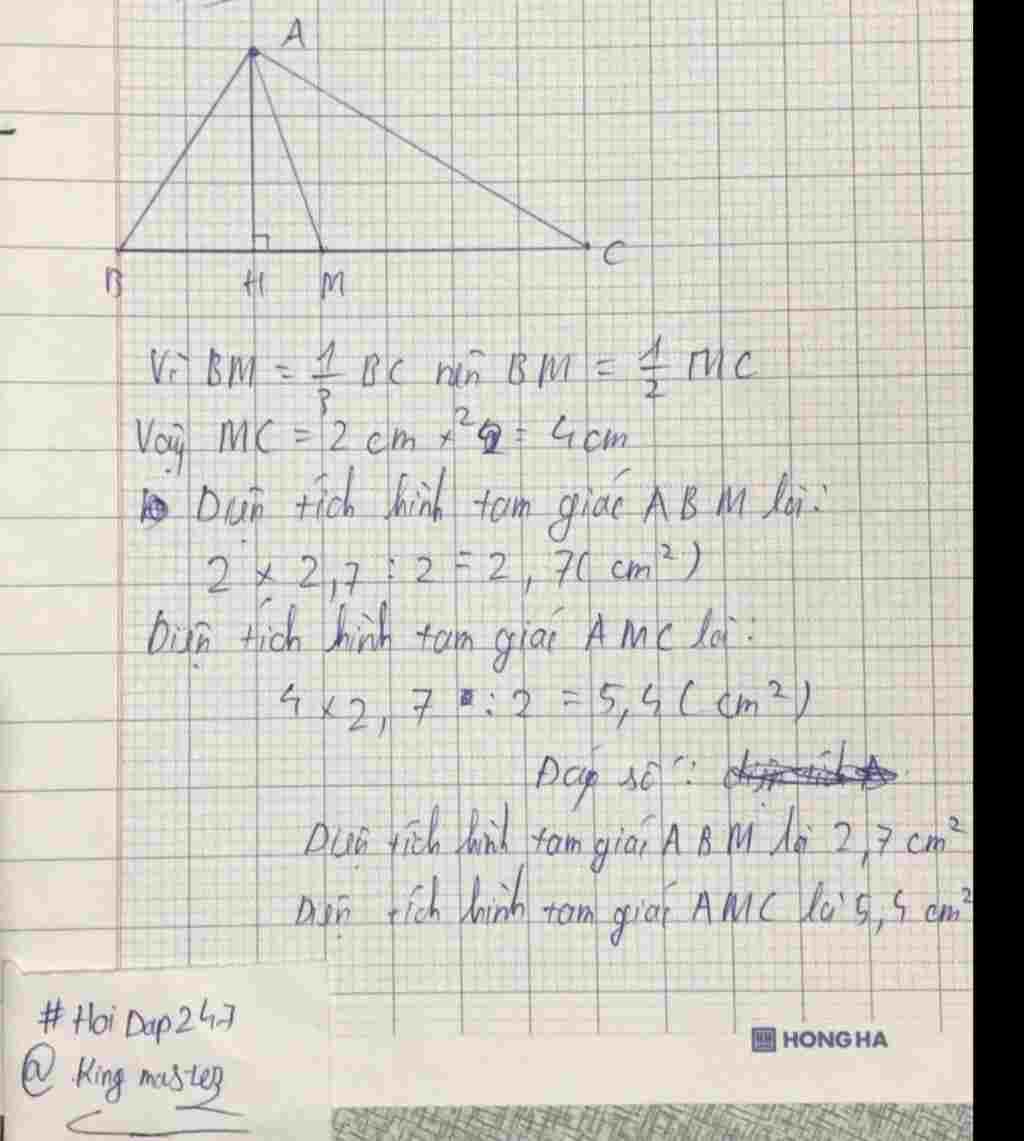 A
B H M C
Vì BM = 1/3 BC nên BM = 1/2 MC
Vậy MC = 2 cm × 2 = 4 cm
Diện tích hình tam giác ABM là:
2 × 2,7 : 2 = 2,7 ( cm²)
Diện tích hình tam giác AMC là:
4 × 2,7 : 2 = 5,4 ( cm²)
Đáp số:
Diện tích hình tam giác ABM là 2,7 cm²
Diện tích hình tam giác AMC là 5,4 cm²
# Hoi Dap 247
@ King master
HONG HA